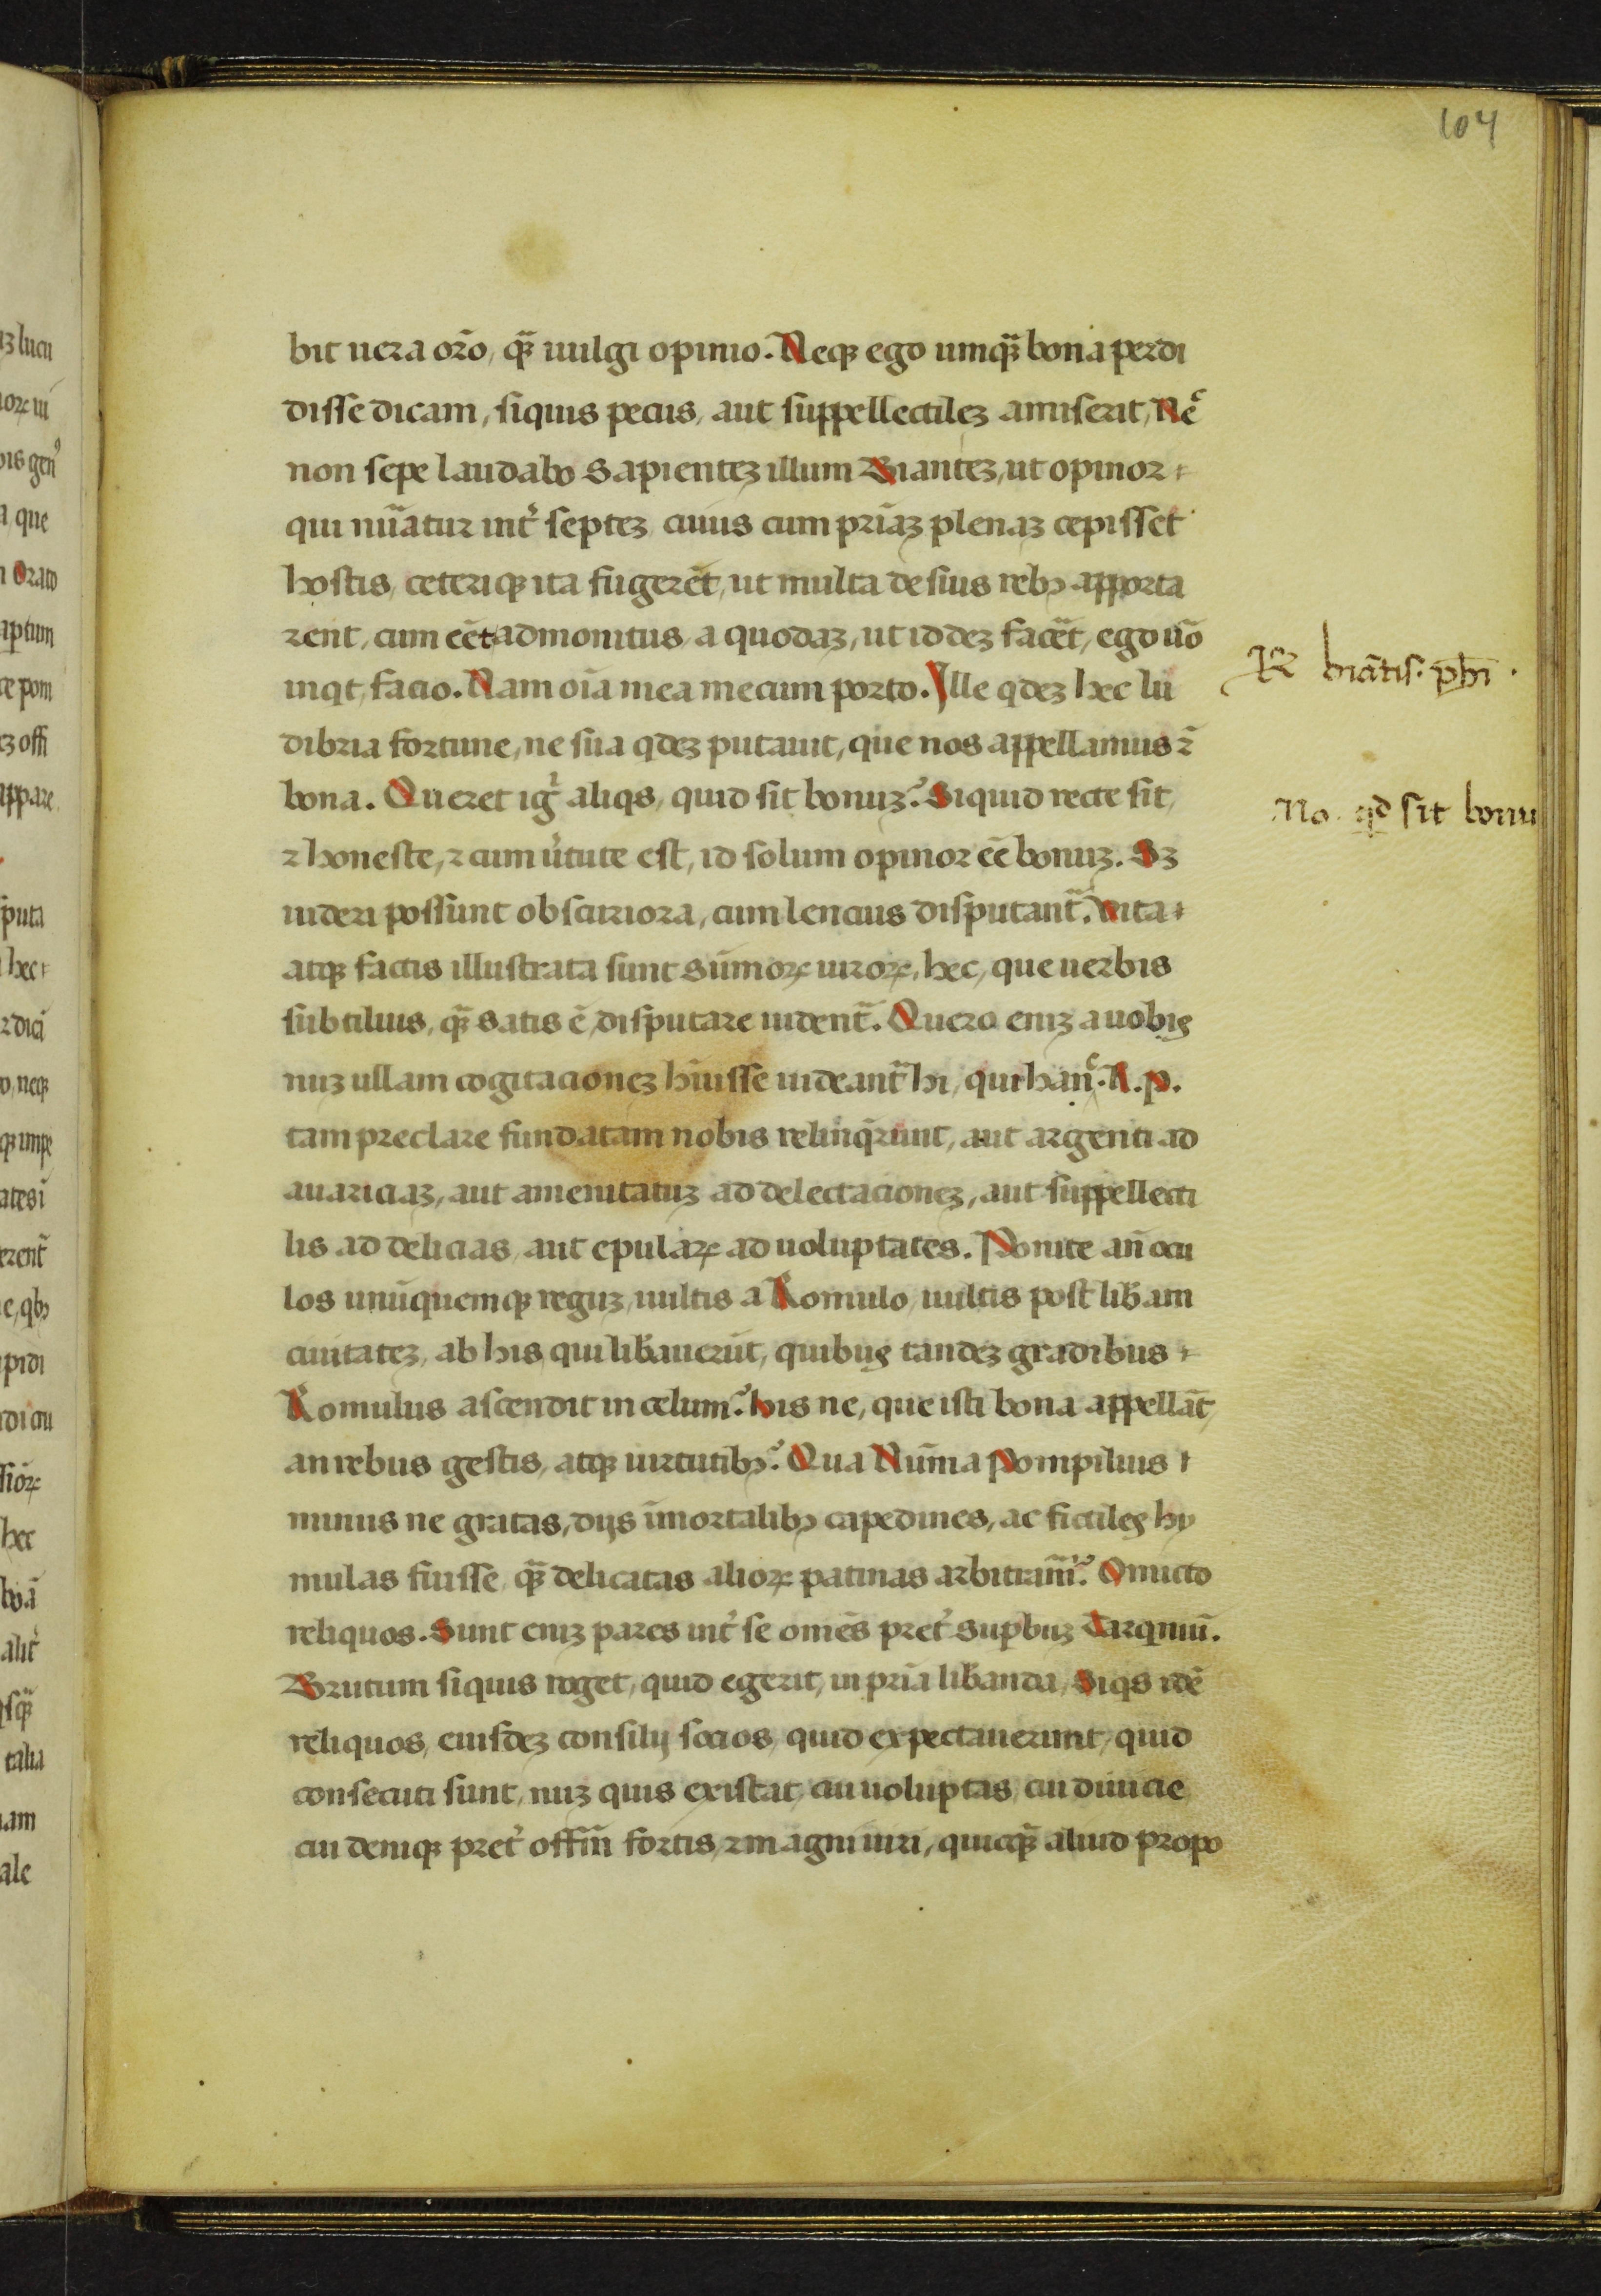 104
bit uera or̄o, qꝫ̄ uulgi opinio. Neqꝫ ego umqꝫ̄ bona perdi
disse dicam, siquis pecus, aut suppellectilez amiserit, Nec̄
non sepe laudabo sapientez illum Biantez, ut opinor
qui nūatur int̉ septez cuius cum priāz plenaz cepisset
hostis, ceteriqꝫ ita fugerēt, ut multa de suis rebꝫ apporta
rent, cum eēt admonitus a quodaz, ut iddez facēt, ego uō
inqt, facio. Nam oīa mea mecum porto. Ille qdez hec lu
dibria fortune, ne sua qdez putauit, que nos appellamus ⁊̄
bona. Queret igr̉ aliqs, quid sit bonuz? Siquid recte sit,
⁊ honeste, ⁊ cum ủtute est, id solum opinor eē bonuz. Sꝫ
uideri possunt obscuriora, cum lencius disputant̄. Vita
atqꝫ factis illustrata sunt sūmoꝝ uiroꝝ, hec, que uerbis
subtilius, qꝫ̄ satis ē, disputare uident̄. Quero eniz a uobis
nuz ullam cogitacionez hūisse uideant̄ hi, qui hanc. R.p.
tam preclare fundatam nobis relinqrunt, aut argenti ad
auariciaz, aut amenitatuz ad delectacionez, aut suppellecti
lis ad delicias, aut epulaꝝ ad uoluptates. Ponite an̄ ocu
los unūquemqꝫ reguz, uultis a Romulo, uultis post lib̄am
ciuitatez, ab his qui lib̄auerūt, quibus tandez gradibus
Romulus ascendit in celum? his ne, que isti bona appellāt,
an rebus gestis, atqꝫ uirtutibꝫ? Qua Nūma Pompilius
minus ne gratas, dijs īmortalibꝫ capedines, ac fictiles hy
mulas fuisse, qꝫ̄ delicatas alioꝝ patinas arbitram̄? Omicto
reliquos. Sunt eniz pares int̉ se omēs pret̉ suꝑbuz Tarquiniū.
Brutum siquis roget, quid egerit, in pria lib̄anda, Siqs idē
reliquos, eiusdez consilij socios, quid expectauerunt, quid
consecuti sunt, nuz quis existat, cui uoluptas, cui diuicie
cui deniqꝫ pret̉ offm̄ fortis, ⁊ magni uiri, quicqꝫ̄ aliud propo
R̄ biātis. ph̄i.
No. qd sit bonu